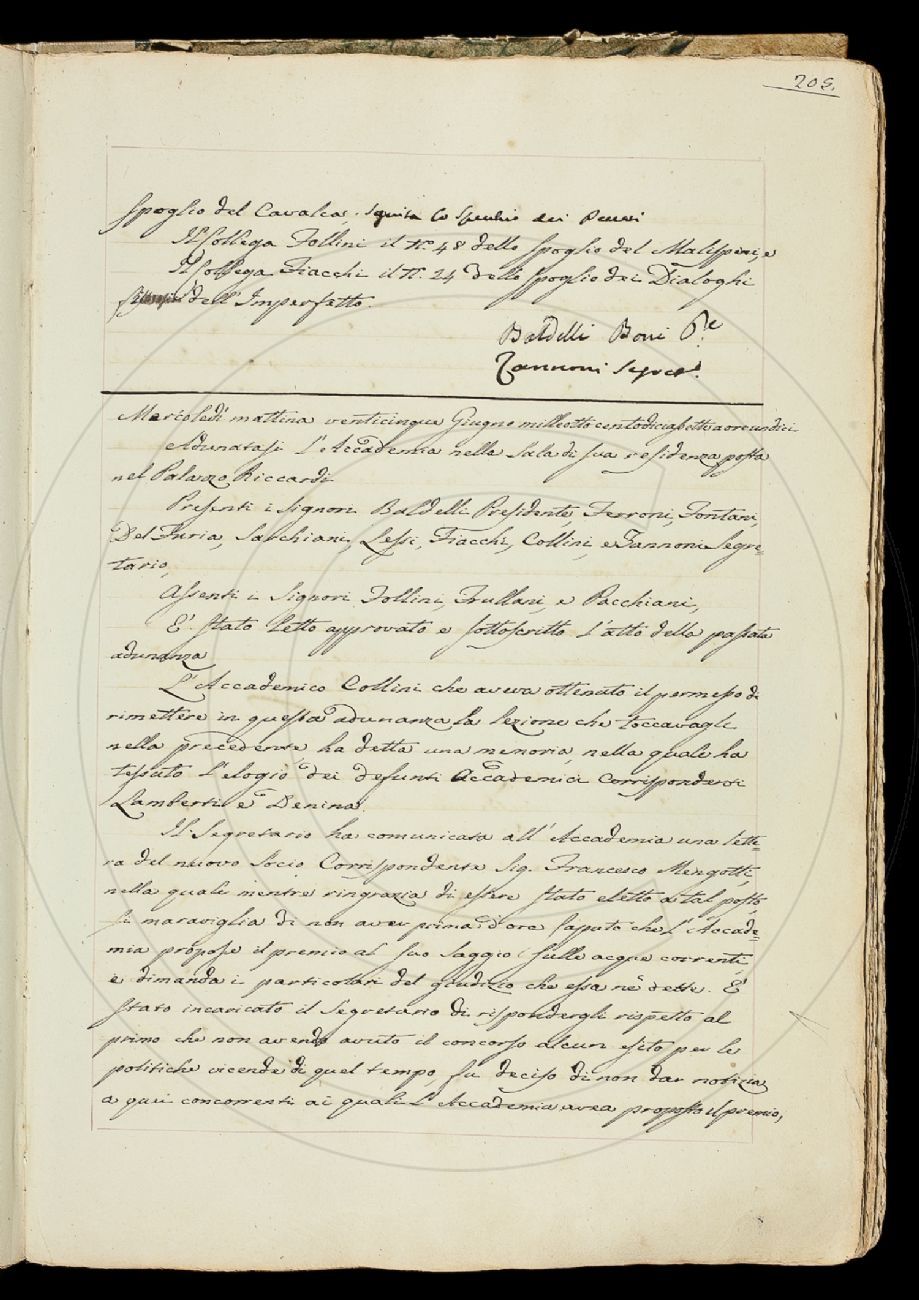 205.
Spoglio del Cavalca, seguita lo Specchio dei Peccati
Il Collega Follini il N.º 48 dello Spoglio del Malispini, e
Il Collega Fiacchi il N. 24 dello Spoglio dei Dialoghi
dell'Imperfetto.
Baldelli Boni P.e
Zannoni Segret.º
Mercoledì mattina venticinque Giugno milleottocentodiciassette a ore undici
Adunatasi l'Accademia nella Sala di sua residenza posta
nel Palazzo Riccardi
Presenti i Signori Baldelli Presidente, Ferroni, Fontani,
Del Furia, Sarchiani, Lessi, Fiacchi, Collini, e Zannoni Segre=
tario,
Assenti i Signori Follini, Frullani, e Pacchiani,
E' stato letto approvato e sottoscritto l'atto della passata
adunanza
L'Accademico Collini che aveva ottenuto il permesso di
rimettere in questa adunanza la lezione che toccavagli
nella precedente ha detta una memoria, nella quale ha
tessuto l'elogio dei defunti Accademici Corrispondenti
Lamberti e Denina.
Il Segretario ha comunicata all'Accademia una lette=
ra del nuovo Socio Corrispondente Sig. Francesco Mengotti,
nella quale mentre ringrazia di essere stato eletto a tal posto,
si maraviglia di non aver prima d'ora saputo che l'Accade=
mia propose il premio al suo Saggio sulle acque correnti,
e dimanda i particolari del giudizio che essa ne dette. E'
stato incaricato il Segretario di rispondergli rispetto al
primo che non avendo avuto il concorso alcun esito per le
politiche vicende di quel tempo, fu deciso di non dar notizia
a quei concorrenti ai quali l'Accademia avea proposto il premio,